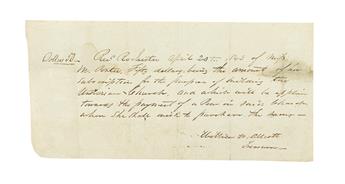 Dollars 50— Rec'd Rochester April 20th 1843 of Miss
M. Porter Fifty dollars, being the amount of her
subscription for the purpose of building the
Unitarian Church, and which will be applied
towards the payment of a Pew in said Church
when She shall wish to purchase the same—
Treasurer